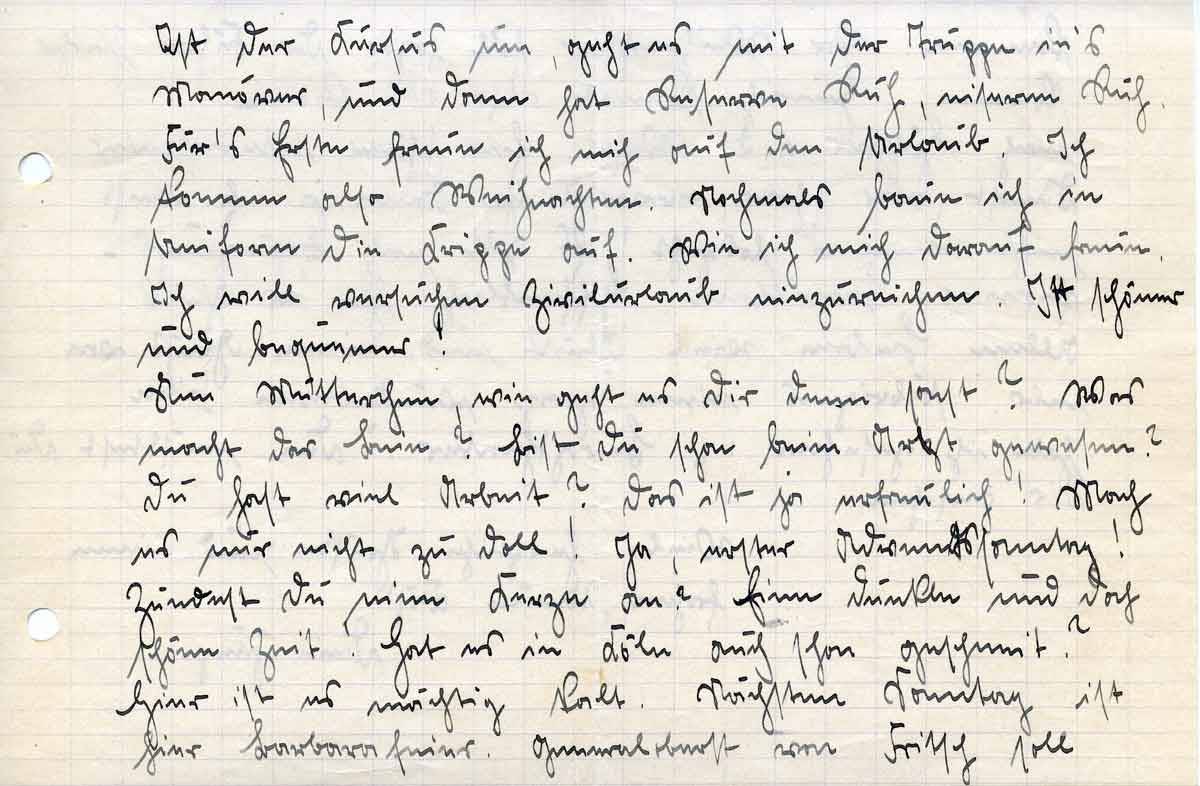 Ist der Kursus um, geht es mit der Truppe in's
Manöver, und dann hat Reserve Ruh, eiserne Ruh.
Für's Erste freue ich mich auf den Urlaub. Ich
komme also Weihnachten. Nochmals baue ich in
Uniform die Krippe auf. Wie ich mich darauf freue.
Ich will versuchen Zivilurlaub einzureichen. Ist schöner
und bequemer!
Nun Mütterchen, wie geht es Dir denn sonst? Was
macht das Bein? Bist Du schon beim Arzt gewesen?
Du hast viel Arbeit? Das ist ja erfreulich! Mach
es nur nicht zu doll! Ja, erster Adventssonntag!
Zündest Du eine Kerze an? Eine dunkle und doch
schöne Zeit! Hat es in Köln auch schon geschneit?
Hier ist es mächtig kalt. Nächsten Sonntag ist
hier Barbarafeier. Generaloberst von Fritsch soll